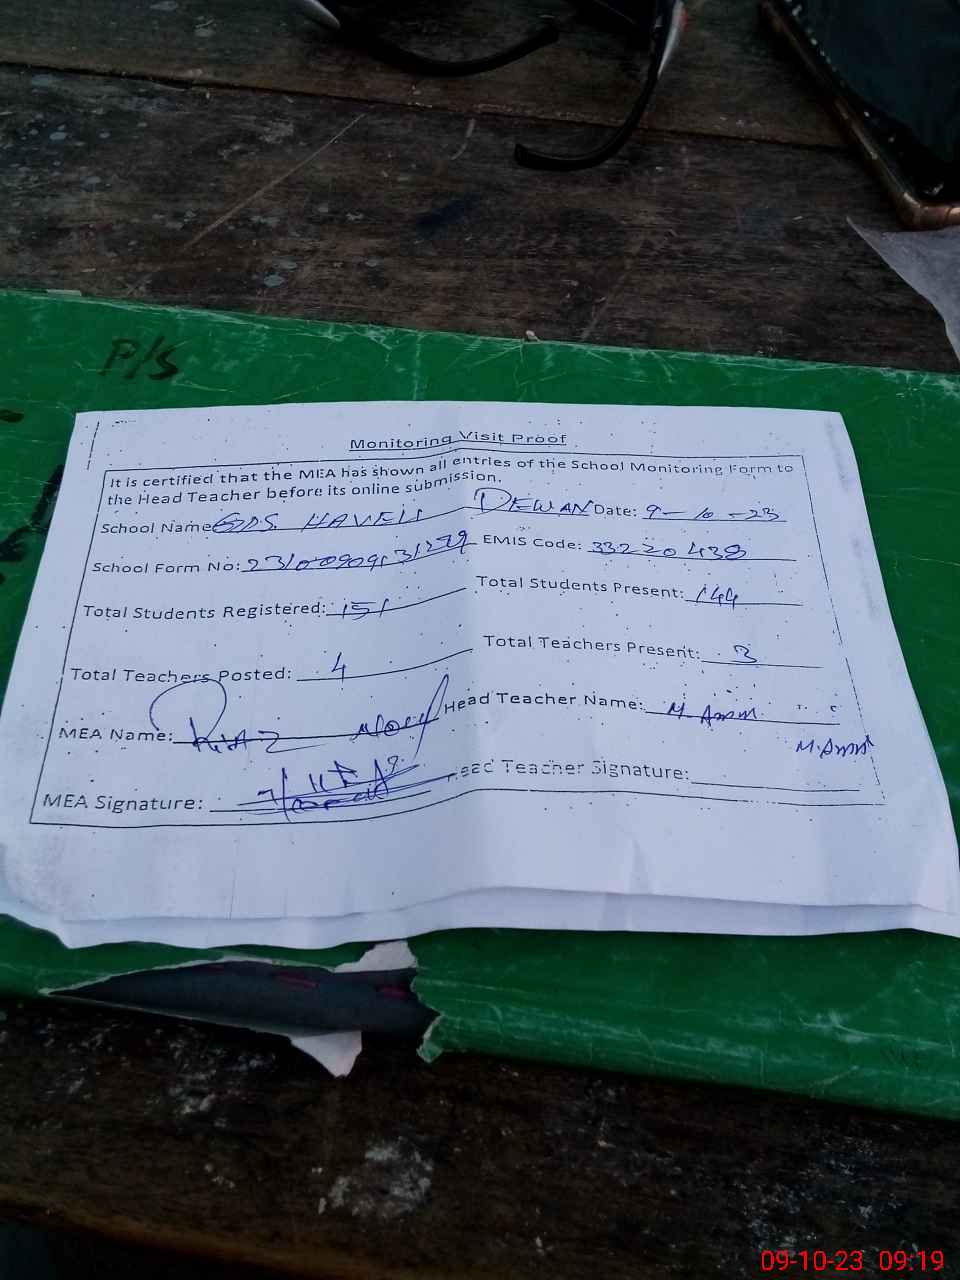 P/S
Monitoring Visit Proof
It is certified that the MEA has shown all entries of the School Monitoring Form to
the Head Teacher before its online submission.
School Name: HAVELI DEWAN Date: 9-10-23
School Form No: EMIS Code: 33220438
Total Students Registered: 151 Total Students Present: 144
Total Teachers Posted: 4 Total Teachers Present: 3
MEA Name: Head Teacher Name: M.
MEA Signature: Head Teacher Signature:
09-10-23 09:19